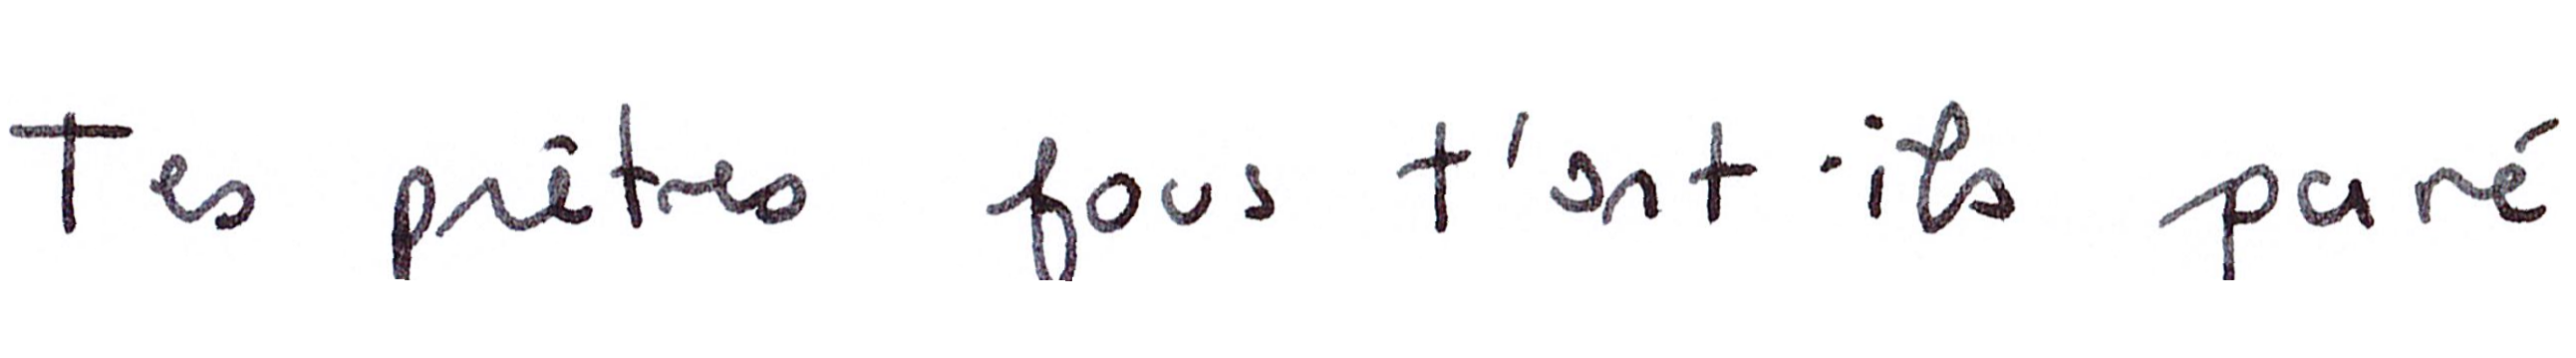 Tes prêtres fous t'ont-ils paré